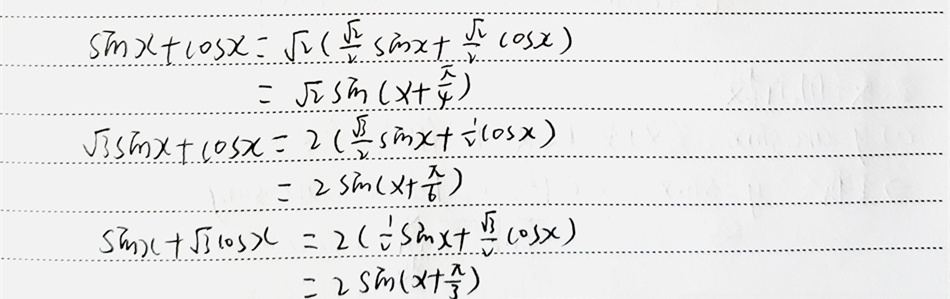 sinx+cosx=√2(√2/2 sinx+√2/2 cosx)
=√2 sin(x+π/4)
√3sinx+cosx=2(√3/2 sinx+1/2 cosx)
=2sin(x+π/6)
sinx+√3cosx=2(1/2 sinx+√3/2 cosx)
=2sin(x+π/3)